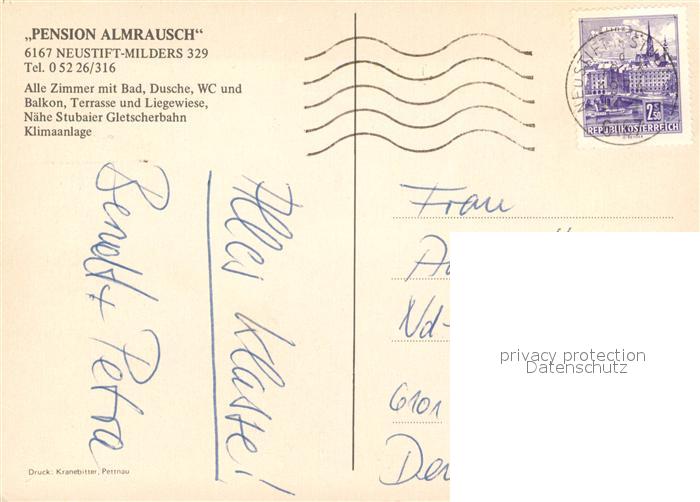 „PENSION ALMRAUSCH“
6167 NEUSTIFT-MILDERS 329
Tel. 0 52 26/316
Alle Zimmer mit Bad, Dusche, WC und
Balkon, Terrasse und Liegewiese,
Nähe Stubaier Gletscherbahn
Klimaanlage
Alles Klasse!
Petra
Druck: Kranebitter, Pettnau
2.50
REPUBLIK ÖSTERREICH
Frau
Nd-
6101
privacy protection
Datenschutz